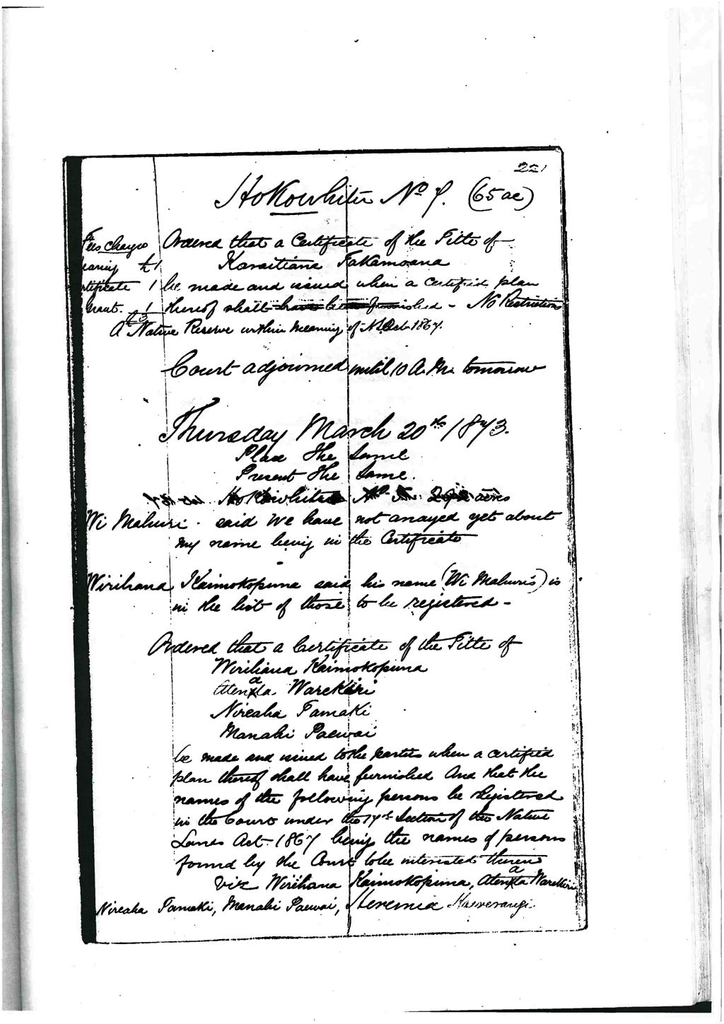 221
Hokowhitu No 7. (65 ac)
Fees charged Ordered that a Certificate of the Title of
hearing £1 Karaitiana Takamoana
rtificate 1 be made and issued when a certified plan
rant. 1 thereof shall have be furnished - No Restriction
£3
A Native Reserve within meaning of N L Act 1867.
Court adjourned until 10 A.M. tomorrow
Thursday March 20th 1873.
Place the Same
Present the Same.
Hokowhitu No acres
Wi Mahuri. said we have not arrayed yet about
my name being in the Certificate
Wirihana Kaimokopuna said his name (Wi Mahuris) is
in the list of those to be registered -
Ordered that a Certificate of the Title of
Wirihana Kaimokopuna
Atenata Warekiri
Nireaha Tamaki
Manahi Paewai
be made and issued to the parties when a certified
plan thereof shall have furnished And that the
names of the following persons be registered
in the Court under the 17th Section of the Native
Lands Act. 1867 being the names of persons
found by the Court to be interested therein
viz Wirihana Kaimokopuna, Atenata Warekiri
Nireaha Tamaki, Manahi Paewai, Heremia